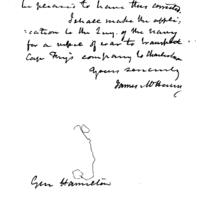 to have this
I shall make the appli-
cation to the Secy. of the Navy
for a vessel of war to transport
Capt company to Charleston
Yours sincerely
James McHenry
Gen Hamilton